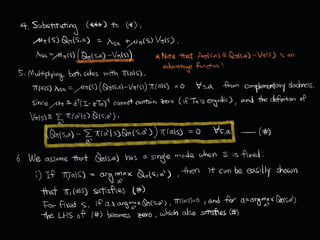 4. Substituting (***) to (*),
μπ(s) Qπ(s,a) = λsa + μπ(s) Vπ(s),
λsa = μπ(s) (Qπ(s,a) - Vπ(s))
* Note that Aπ(s,a) ≜ Qπ(s,a) - Vπ(s) is an
advantage function!
5. Multiplying both sides with π(a|s),
π(a|s) λsa = μπ(s) (Qπ(s,a) - Vπ(s)) π(a|s) = 0 ∀s,a from complementary slackness.
since μπ = dᵀ(I - γTπ)⁻¹ cannot contain zero (if Tπ is ergodic), and the definition of
Vπ(s) ≜ Σ π(a'|s) Q(s,a'),
(Qπ(s,a) - Σ π(a'|s) Qπ(s,a')) π(a|s) = 0 ∀s,a — (#)
6. We assume that Qπ(s,a) has a single mode when s is fixed:
i) If π(a|s) = arg max Qπ(s,a'), then it can be easily shown
that π(a|s) satisfies (#).
For fixed s, if a ≠ arg max Qπ(s,a'), π(a|s)=0, and for a = arg max Qπ(s,a')
the LHS of (#) becomes zero, which also satisfies (#).